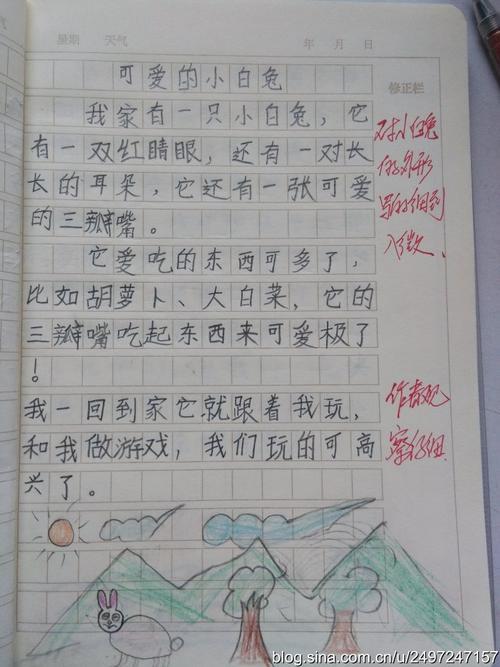 星期 天气 年 月 日
可爱的小白兔
修正栏
我家有一只小白兔，它
有一双红睛眼，还有一对长
长的耳朵，它还有一张可爱
的三瓣嘴。
它爱吃的东西可多了，
比如胡萝卜、大白菜，它的
三瓣嘴吃起东西来可爱极了
！
我一回到家它就跟着我玩，
和我做游戏，我们玩的可高
兴了。
对小白兔
的外形
写的细到
入微、
作者观
察仔细
blog.sina.com.cn/u/2497247157